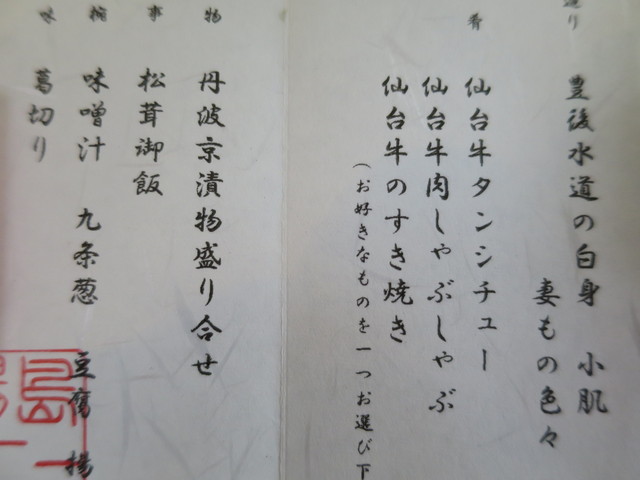 造り
豊後水道の白身 小肌
妻もの色々
肴
仙台牛タンシチュー
仙台牛肉しゃぶしゃぶ
仙台牛のすき焼き
(お好きなものを一つお選び下
物
丹波京漬物盛り合せ
事
松茸御飯
椀
味噌汁 九条葱 豆腐 揚
味
葛切り